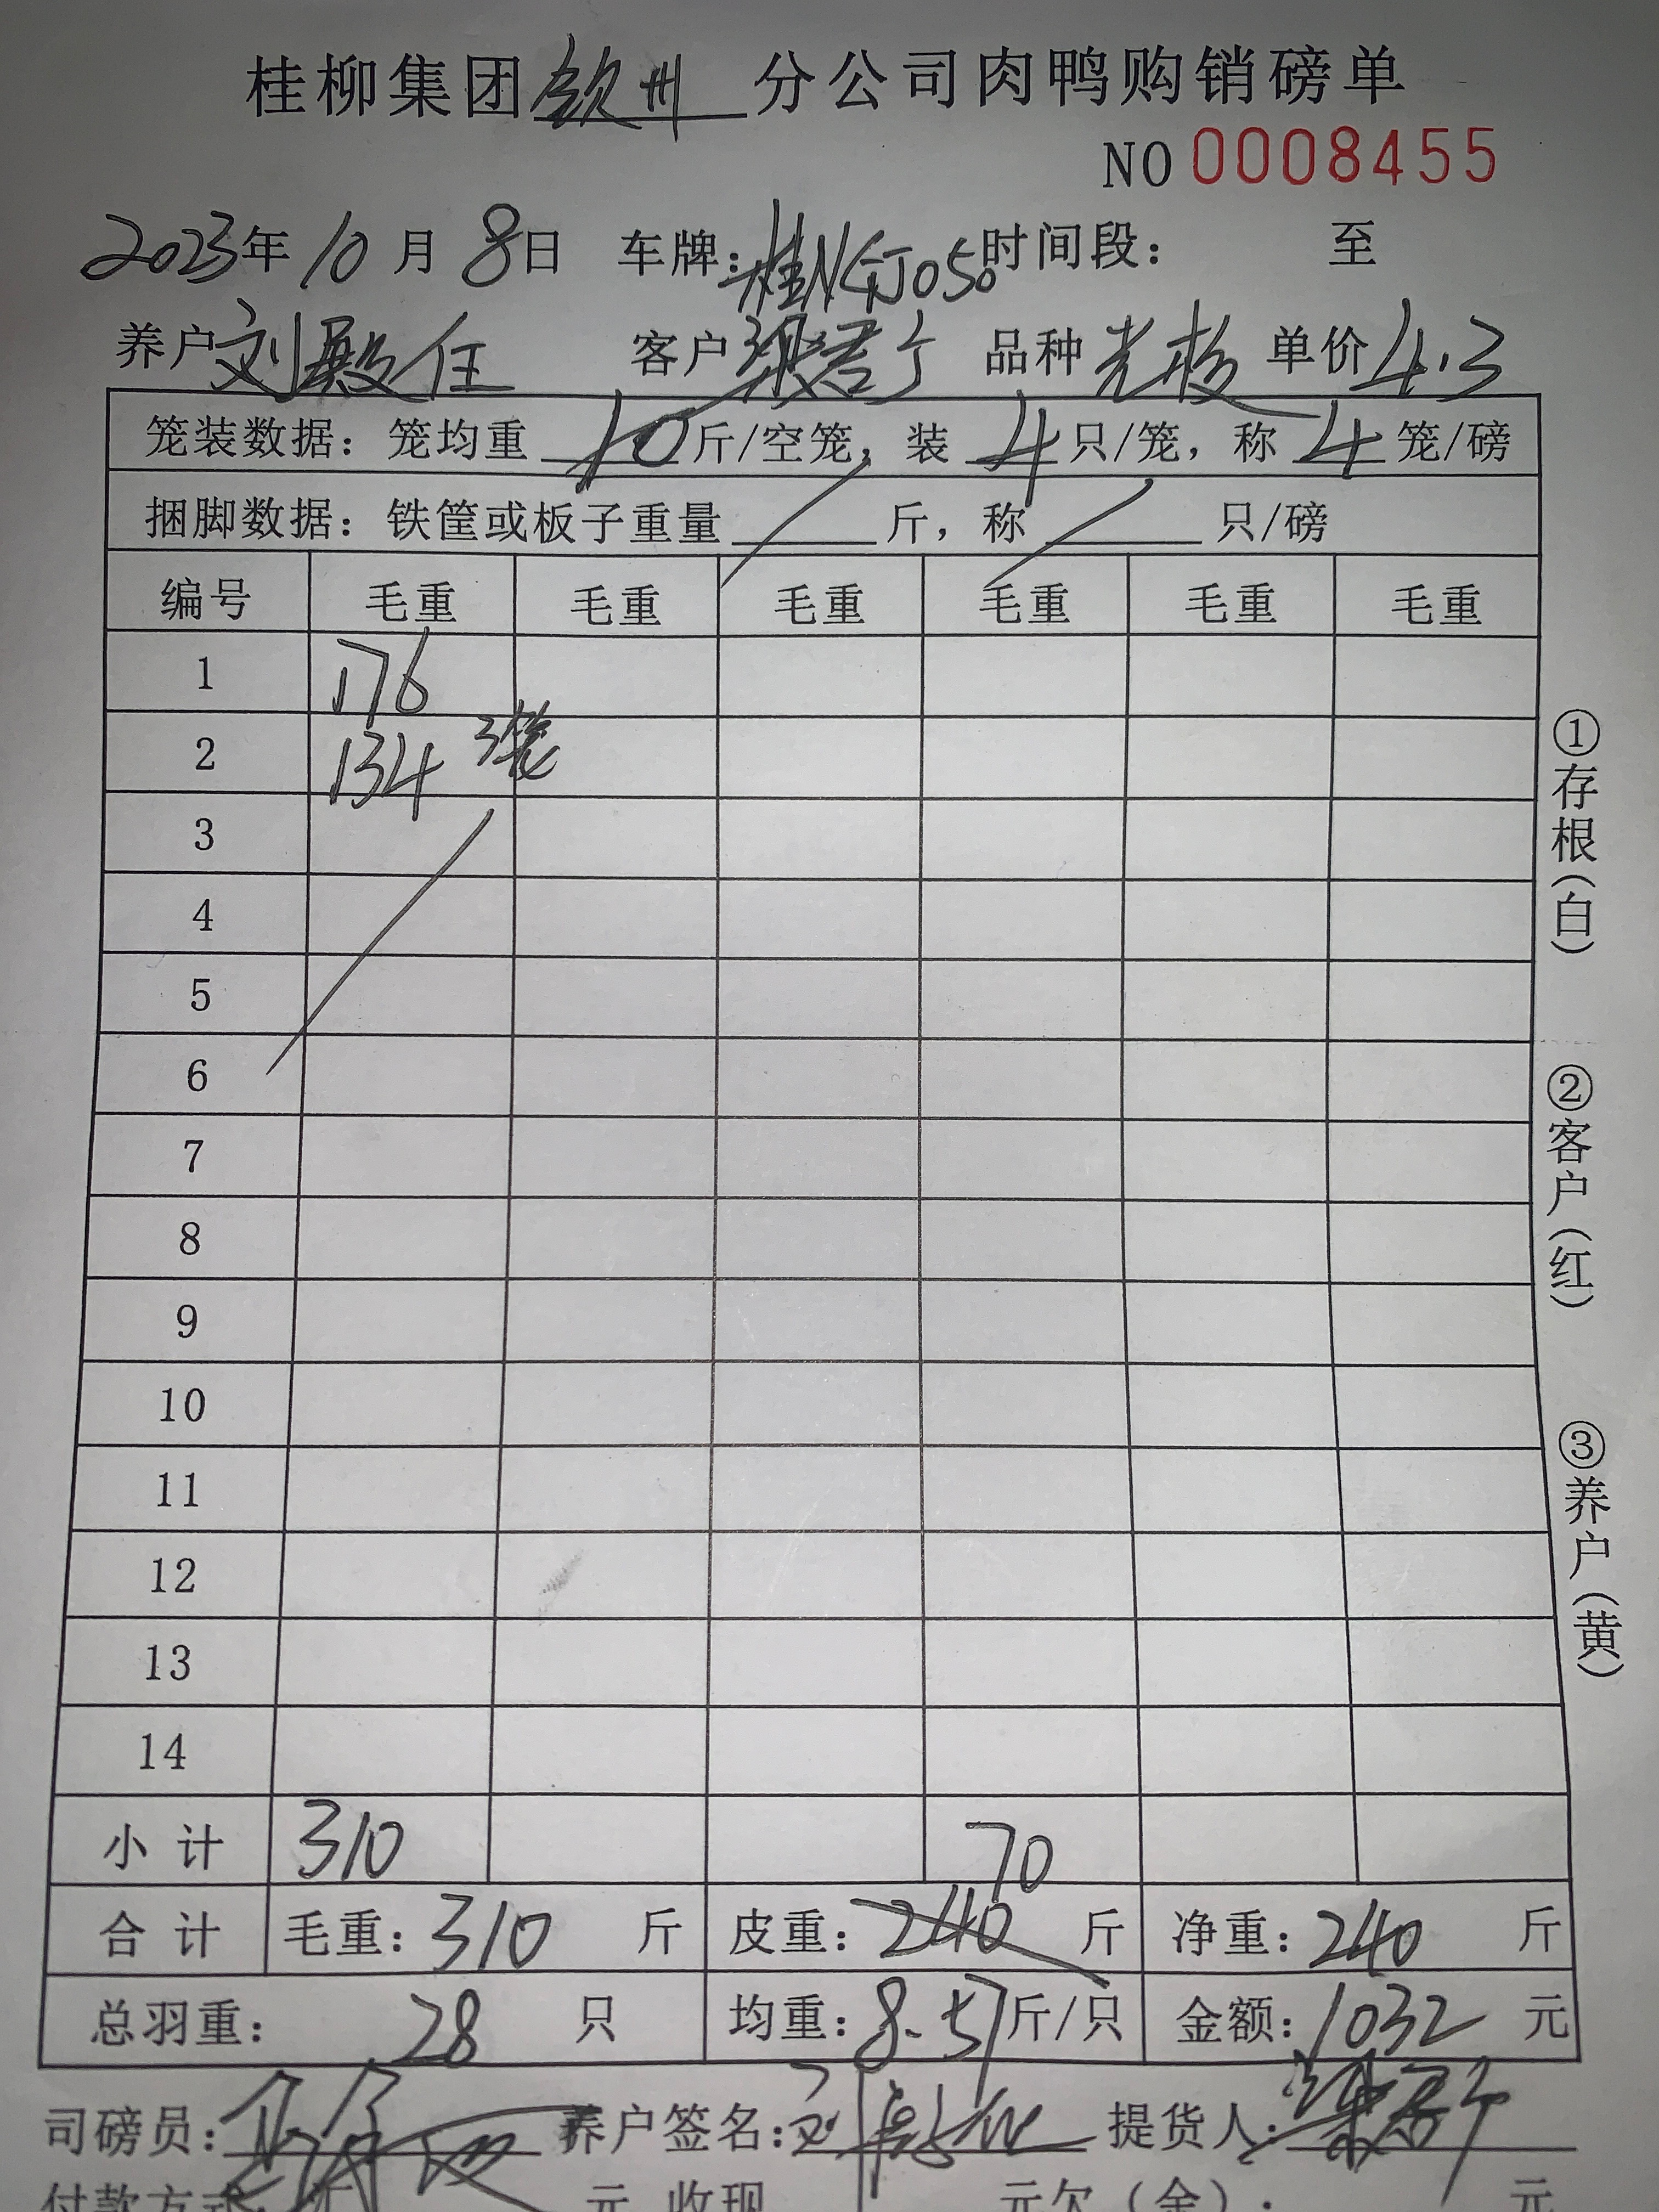 桂柳集团钦州分公司肉鸭购销磅单
NO 0008455
2023年10月8日 车牌:桂N 050 时间段: 至
养户 刘殿任 客户 品种 单价 4.3
笼装数据: 笼均重 10 斤/空笼, 装 4 只/笼, 称 4 笼/磅
捆脚数据: 铁筐或板子重量 斤, 称 只/磅
编号 毛重 毛重 毛重 毛重 毛重 毛重
1 176
2 134 3笼
3
4
5
6
7
8
9
10
11
12
13
14
小计 310 70
合计 毛重: 310 斤 皮重: 240 斤 净重: 240 斤
总羽重: 28 只 均重: 8.57斤/只 金额: 1032 元
司磅员: 养户签名: 提货人:
付款方式: 元 收现 元欠(金): 元
①存根(白)
②客户(红)
③养户(黄)